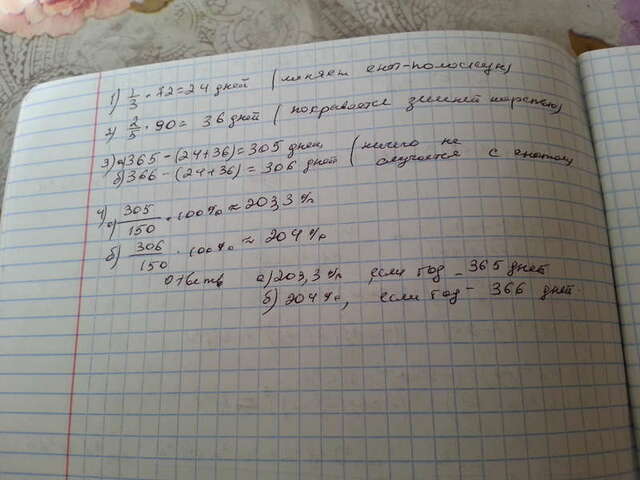 1) 1/3 · 72 = 24 дней (меняет енот-полоскун)
2) 2/5 · 90 = 36 дней (покрывается зимней шерстью)
3) а) 365 - (24+36) = 305 дней (ничего не
б) 366 - (24+36) = 306 дней случается с енотом)
4) а) 305/150 · 100% ≈ 203,3%
б) 306/150 · 100% ≈ 204%
Ответ а) 203,3%, если год - 365 дней
б) 204%, если год - 366 дней.